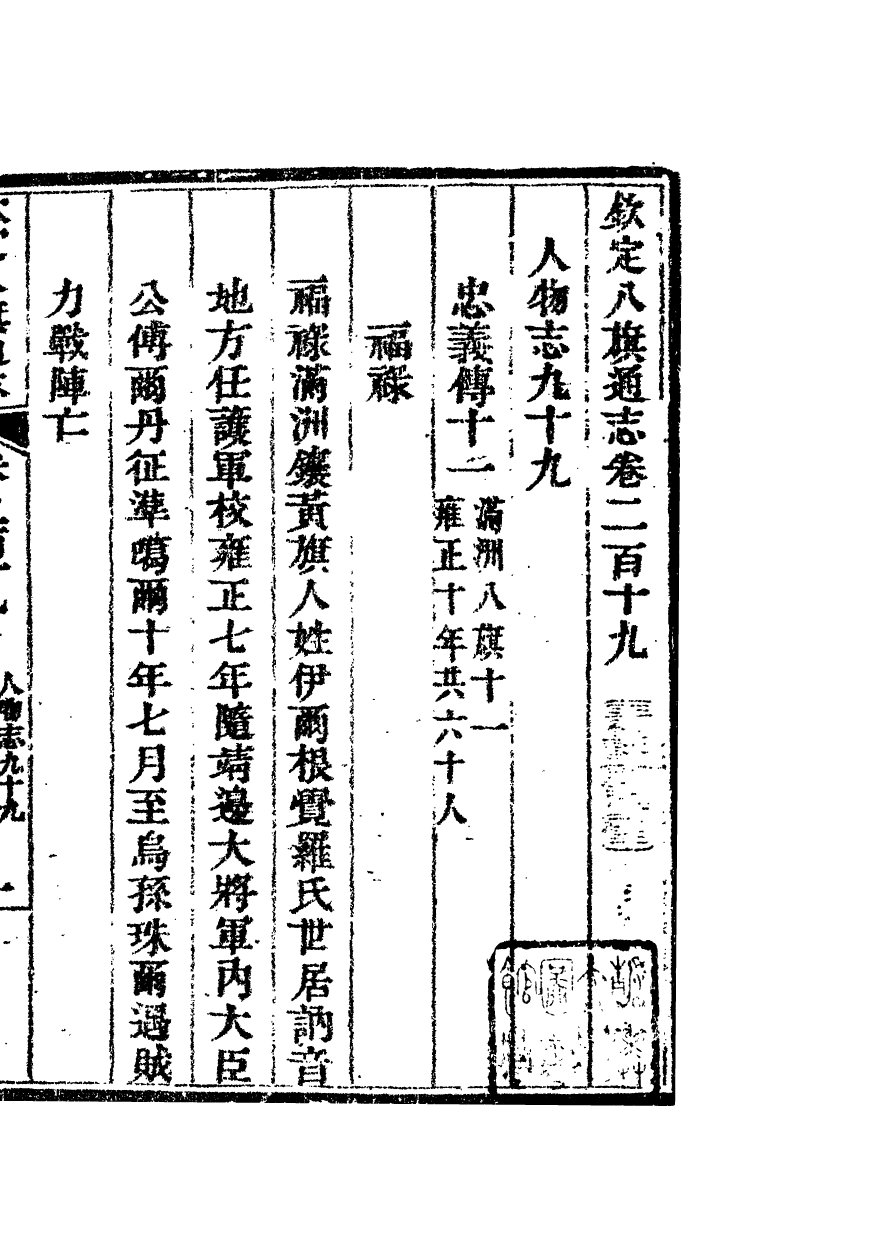 欽定八旗通志卷二百十九
人物志九十九
忠義傳十一
滿洲八旗十一
雍正十年共六十人
福祿
福祿滿洲鑲黃旗人姓伊爾根覺羅氏世居訥音
地方任護軍校雍正七年隨靖邊大將軍內大臣
公傅爾丹征準噶爾十年七月至烏孫珠爾遇賊
力戰陣亡
人物志九十九
一